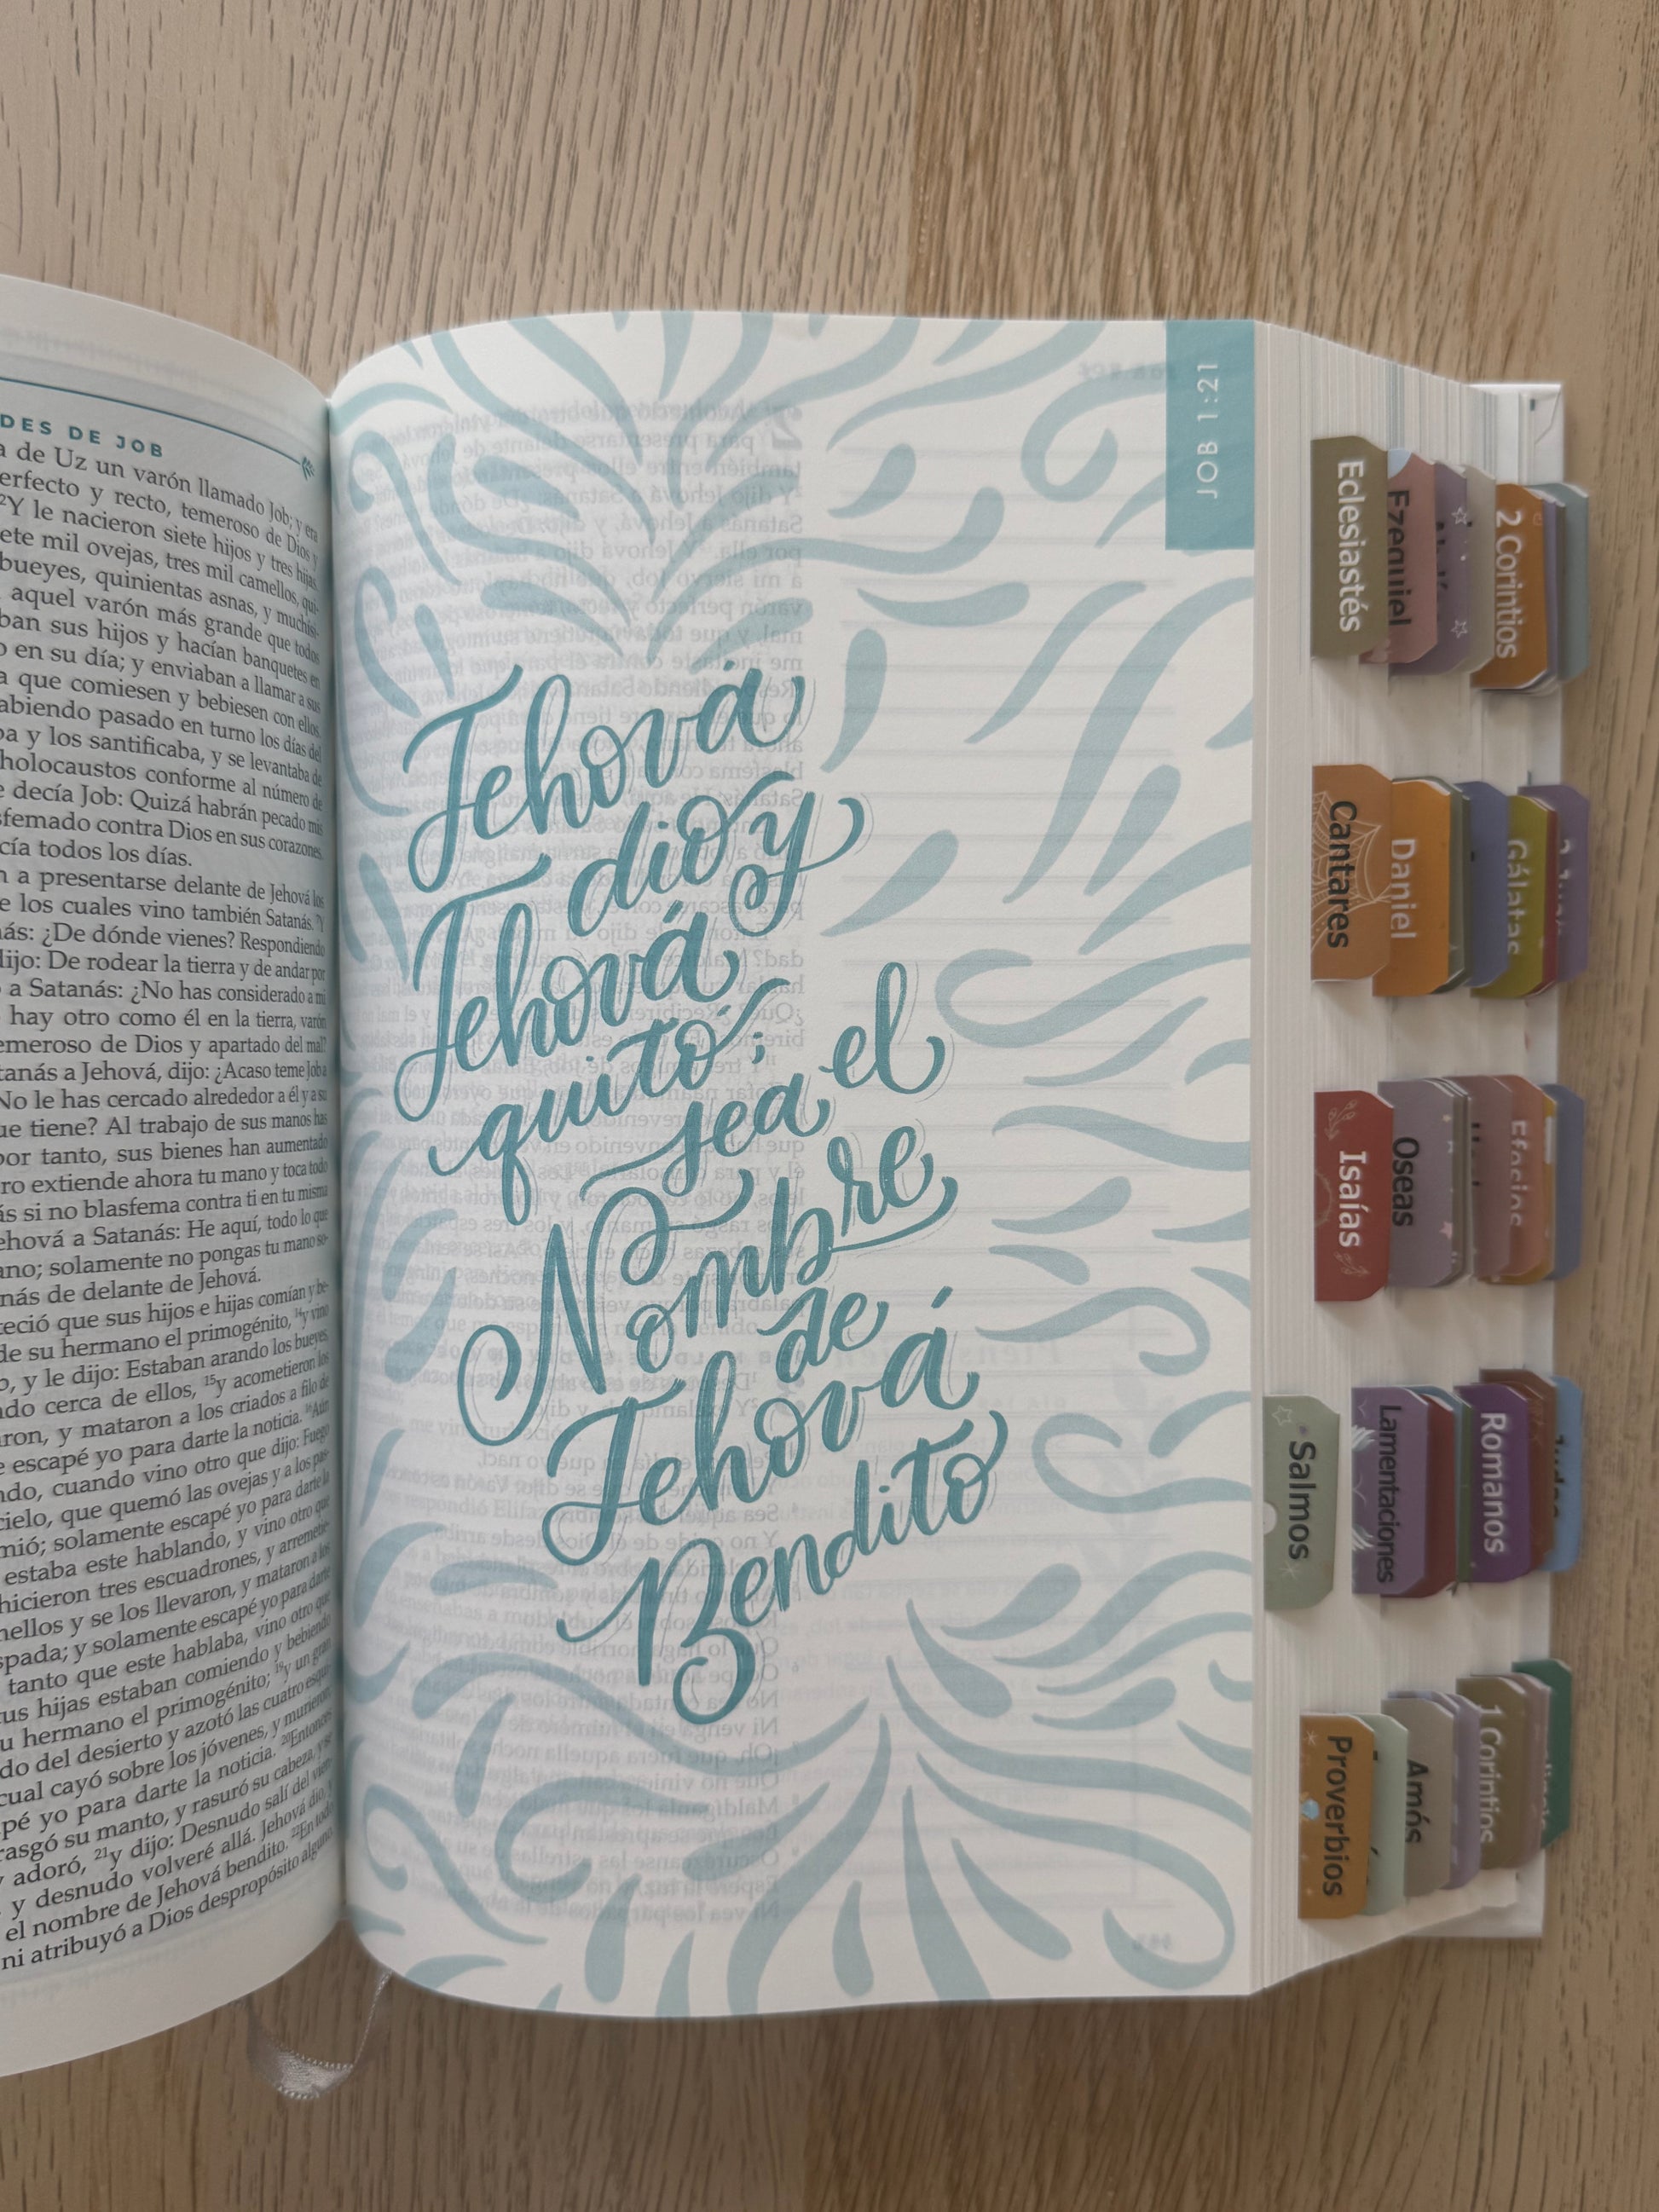 DES DE JOB
a de Uz un varón llamado Job; y era
erfecto y recto, temeroso de Dios y
²Y le nacieron siete hijos y tres hijas.
ete mil ovejas, tres mil camellos, qui-
bueyes, quinientas asnas, y muchísi-
aquel varón más grande que todos
ban sus hijos y hacían banquetes en
o en su día; y enviaban a llamar a sus
a que comiesen y bebiesen con ellos.
abiendo pasado en turno los días del
ba y los santificaba, y se levantaba de
holocaustos conforme al número de
e decía Job: Quizá habrán pecado mis
sfemado contra Dios en sus corazones.
cía todos los días.
n a presentarse delante de Jehová los
e los cuales vino también Satanás. ⁷Y
nás: ¿De dónde vienes? Respondiendo
dijo: De rodear la tierra y de andar por
a Satanás: ¿No has considerado a mi
hay otro como él en la tierra, varón
emeroso de Dios y apartado del mal?
tanás a Jehová, dijo: ¿Acaso teme Job a
No le has cercado alrededor a él y a su
ue tiene? Al trabajo de sus manos has
por tanto, sus bienes han aumentado
ro extiende ahora tu mano y toca todo
ás si no blasfema contra ti en tu misma
ehová a Satanás: He aquí, todo lo que
ano; solamente no pongas tu mano so-
nás de delante de Jehová.
teció que sus hijos e hijas comían y be-
de su hermano el primogénito, ¹⁴y vino
b, y le dijo: Estaban arando los bueyes,
ndo cerca de ellos, ¹⁵y acometieron los
aron, y mataron a los criados a filo de
e escapé yo para darte la noticia. ¹⁶Aún
ndo, cuando vino otro que dijo: Fuego
cielo, que quemó las ovejas y a los pas-
mió; solamente escapé yo para darte la
estaba este hablando, y vino otro que
hicieron tres escuadrones, y arremetie-
mellos y se los llevaron, y mataron a los
spada; y solamente escapé yo para darte
tanto que este hablaba, vino otro que
tus hijas estaban comiendo y bebiendo
u hermano el primogénito; ¹⁹y un gran
do del desierto y azotó las cuatro esqui-
cual cayó sobre los jóvenes, y murieron;
pé yo para darte la noticia. ²⁰Entonces
rasgó su manto, y rasuró su cabeza, y se
y adoró, ²¹y dijo: Desnudo salí del vien-
y desnudo volveré allá. Jehová dio, y
el nombre de Jehová bendito. ²²En todo
ni atribuyó a Dios despropósito alguno.
JOB 1:21
Jehová
dio y
Jehová
quitó;
sea el
Nombre
de
Jehová
Bendito
Eclesiastés
Ezequiel
2 Corintios
Cantares
Daniel
Gálatas
Isaías
Oseas
Efesios
Salmos
Lamentaciones
Romanos
Judas
Proverbios
Amós
1 Corintios